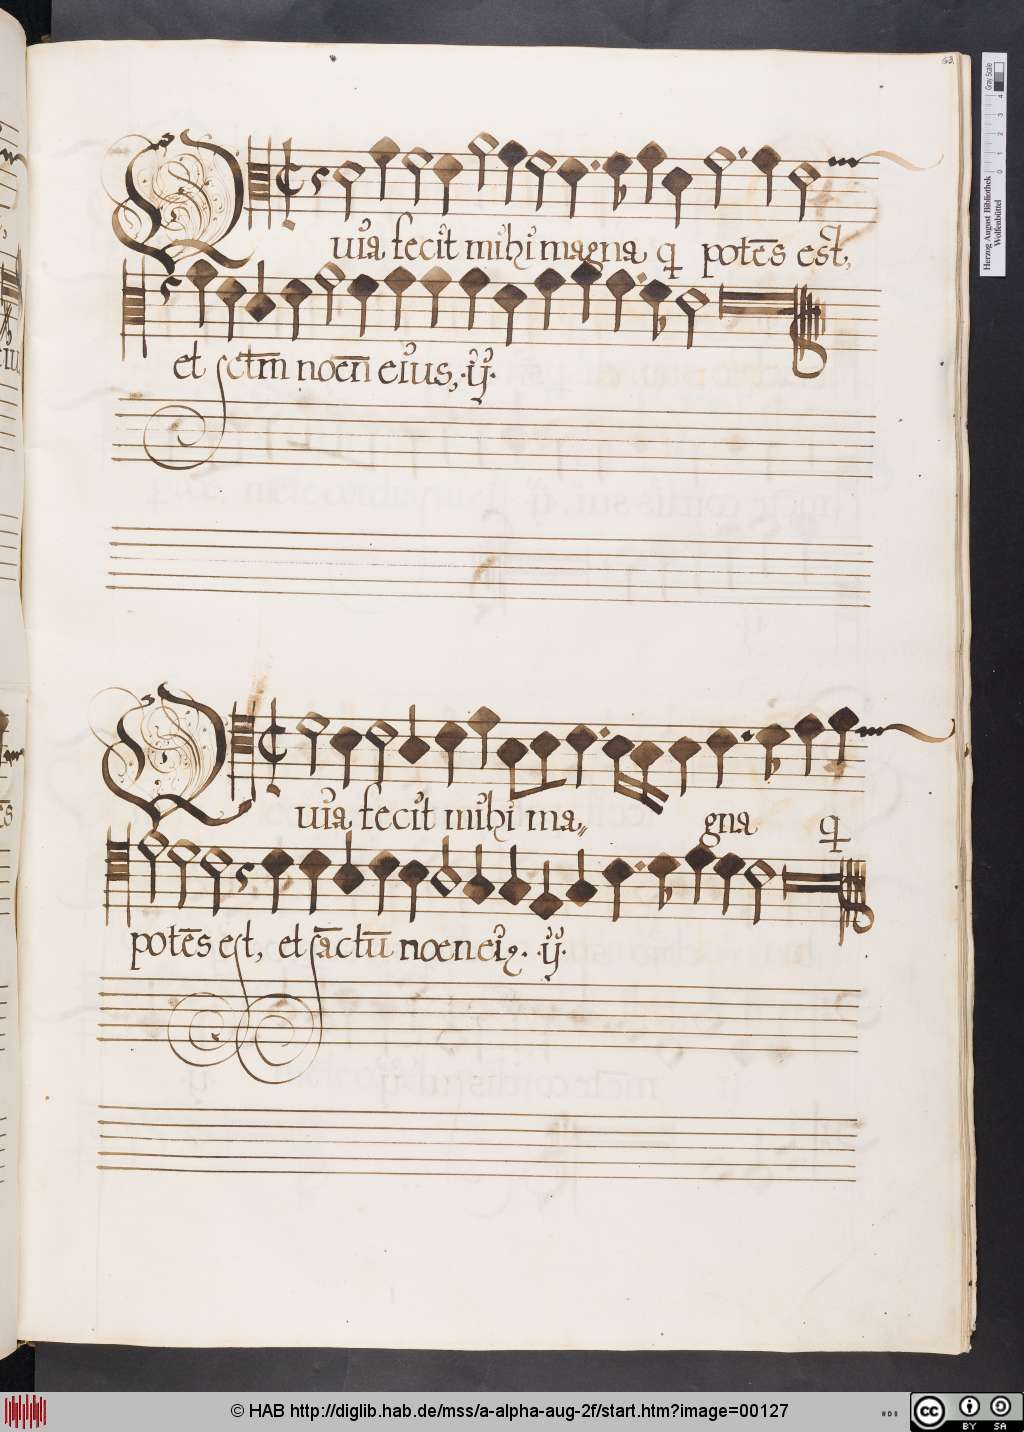 63.
Quia fecit mihi magna q potēs est,
et sctm̄ noen̄ eius, ·ij·
Quia fecit mihi ma= gna q
potēs est, et sāctū noen ei9. ·ij·
Gray Scale
0 1 2 3 4
Herzog August Bibliothek
Wolfenbüttel
© HAB http://diglib.hab.de/mss/a-alpha-aug-2f/start.htm?image=00127
cc BY SA